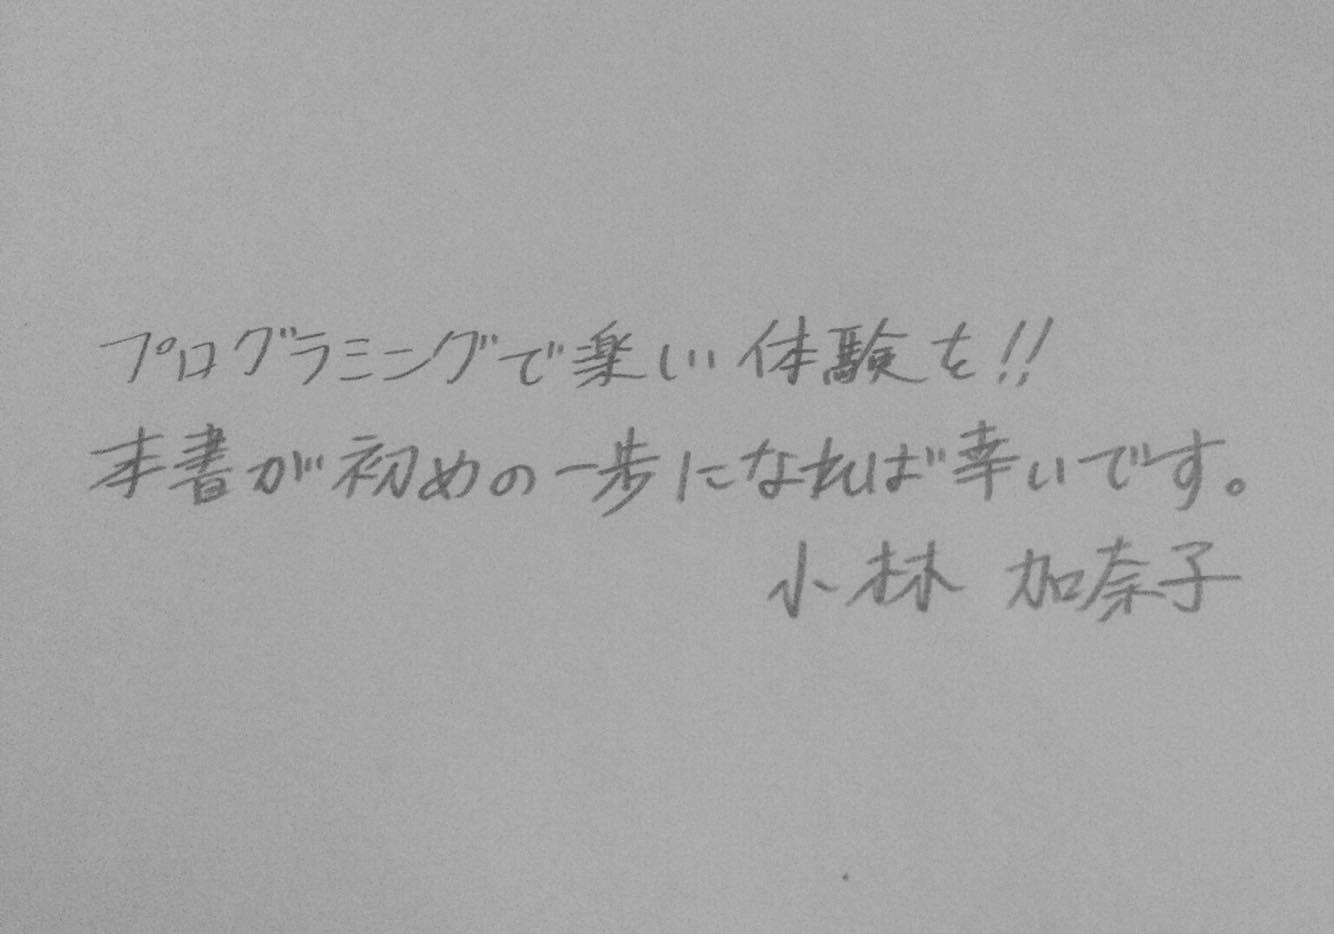 プログラミングで楽しい体験を!!
本書が初めの一歩になれば幸いです。
小林 加奈子